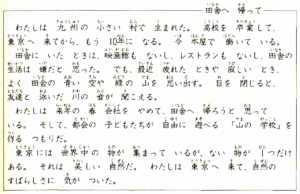 田舎へ 帰って
わたしは 九州の 小さい 村で 生まれた。 高校を 卒業して、
東京へ 来てから、もう 10年に なる。 今 本屋で 働いて いる。
田舎に いた ときは、映画館も ないし、レストランも ないし、田舎の
生活は 嫌だと 思った。 でも、最近 疲れた ときや 寂しい とき、
よく 田舎の 青い 空や 緑の 山を 思い出す。 目を 閉じると、
友達と 泳いだ 川の 音が 聞こえる。
わたしは 来年の 春 会社を やめて、田舎へ 帰ろうと 思って
いる。 そして、都会の 子どもたちが 自由に 遊べる 「山の 学校」を
作る つもりだ。
東京には 世界中の 物が 集まって いるが、ない 物が 1つだけ
ある。 それは 美しい 自然だ。 わたしは 東京へ 来て、自然の
すばらしさに 気が ついた。